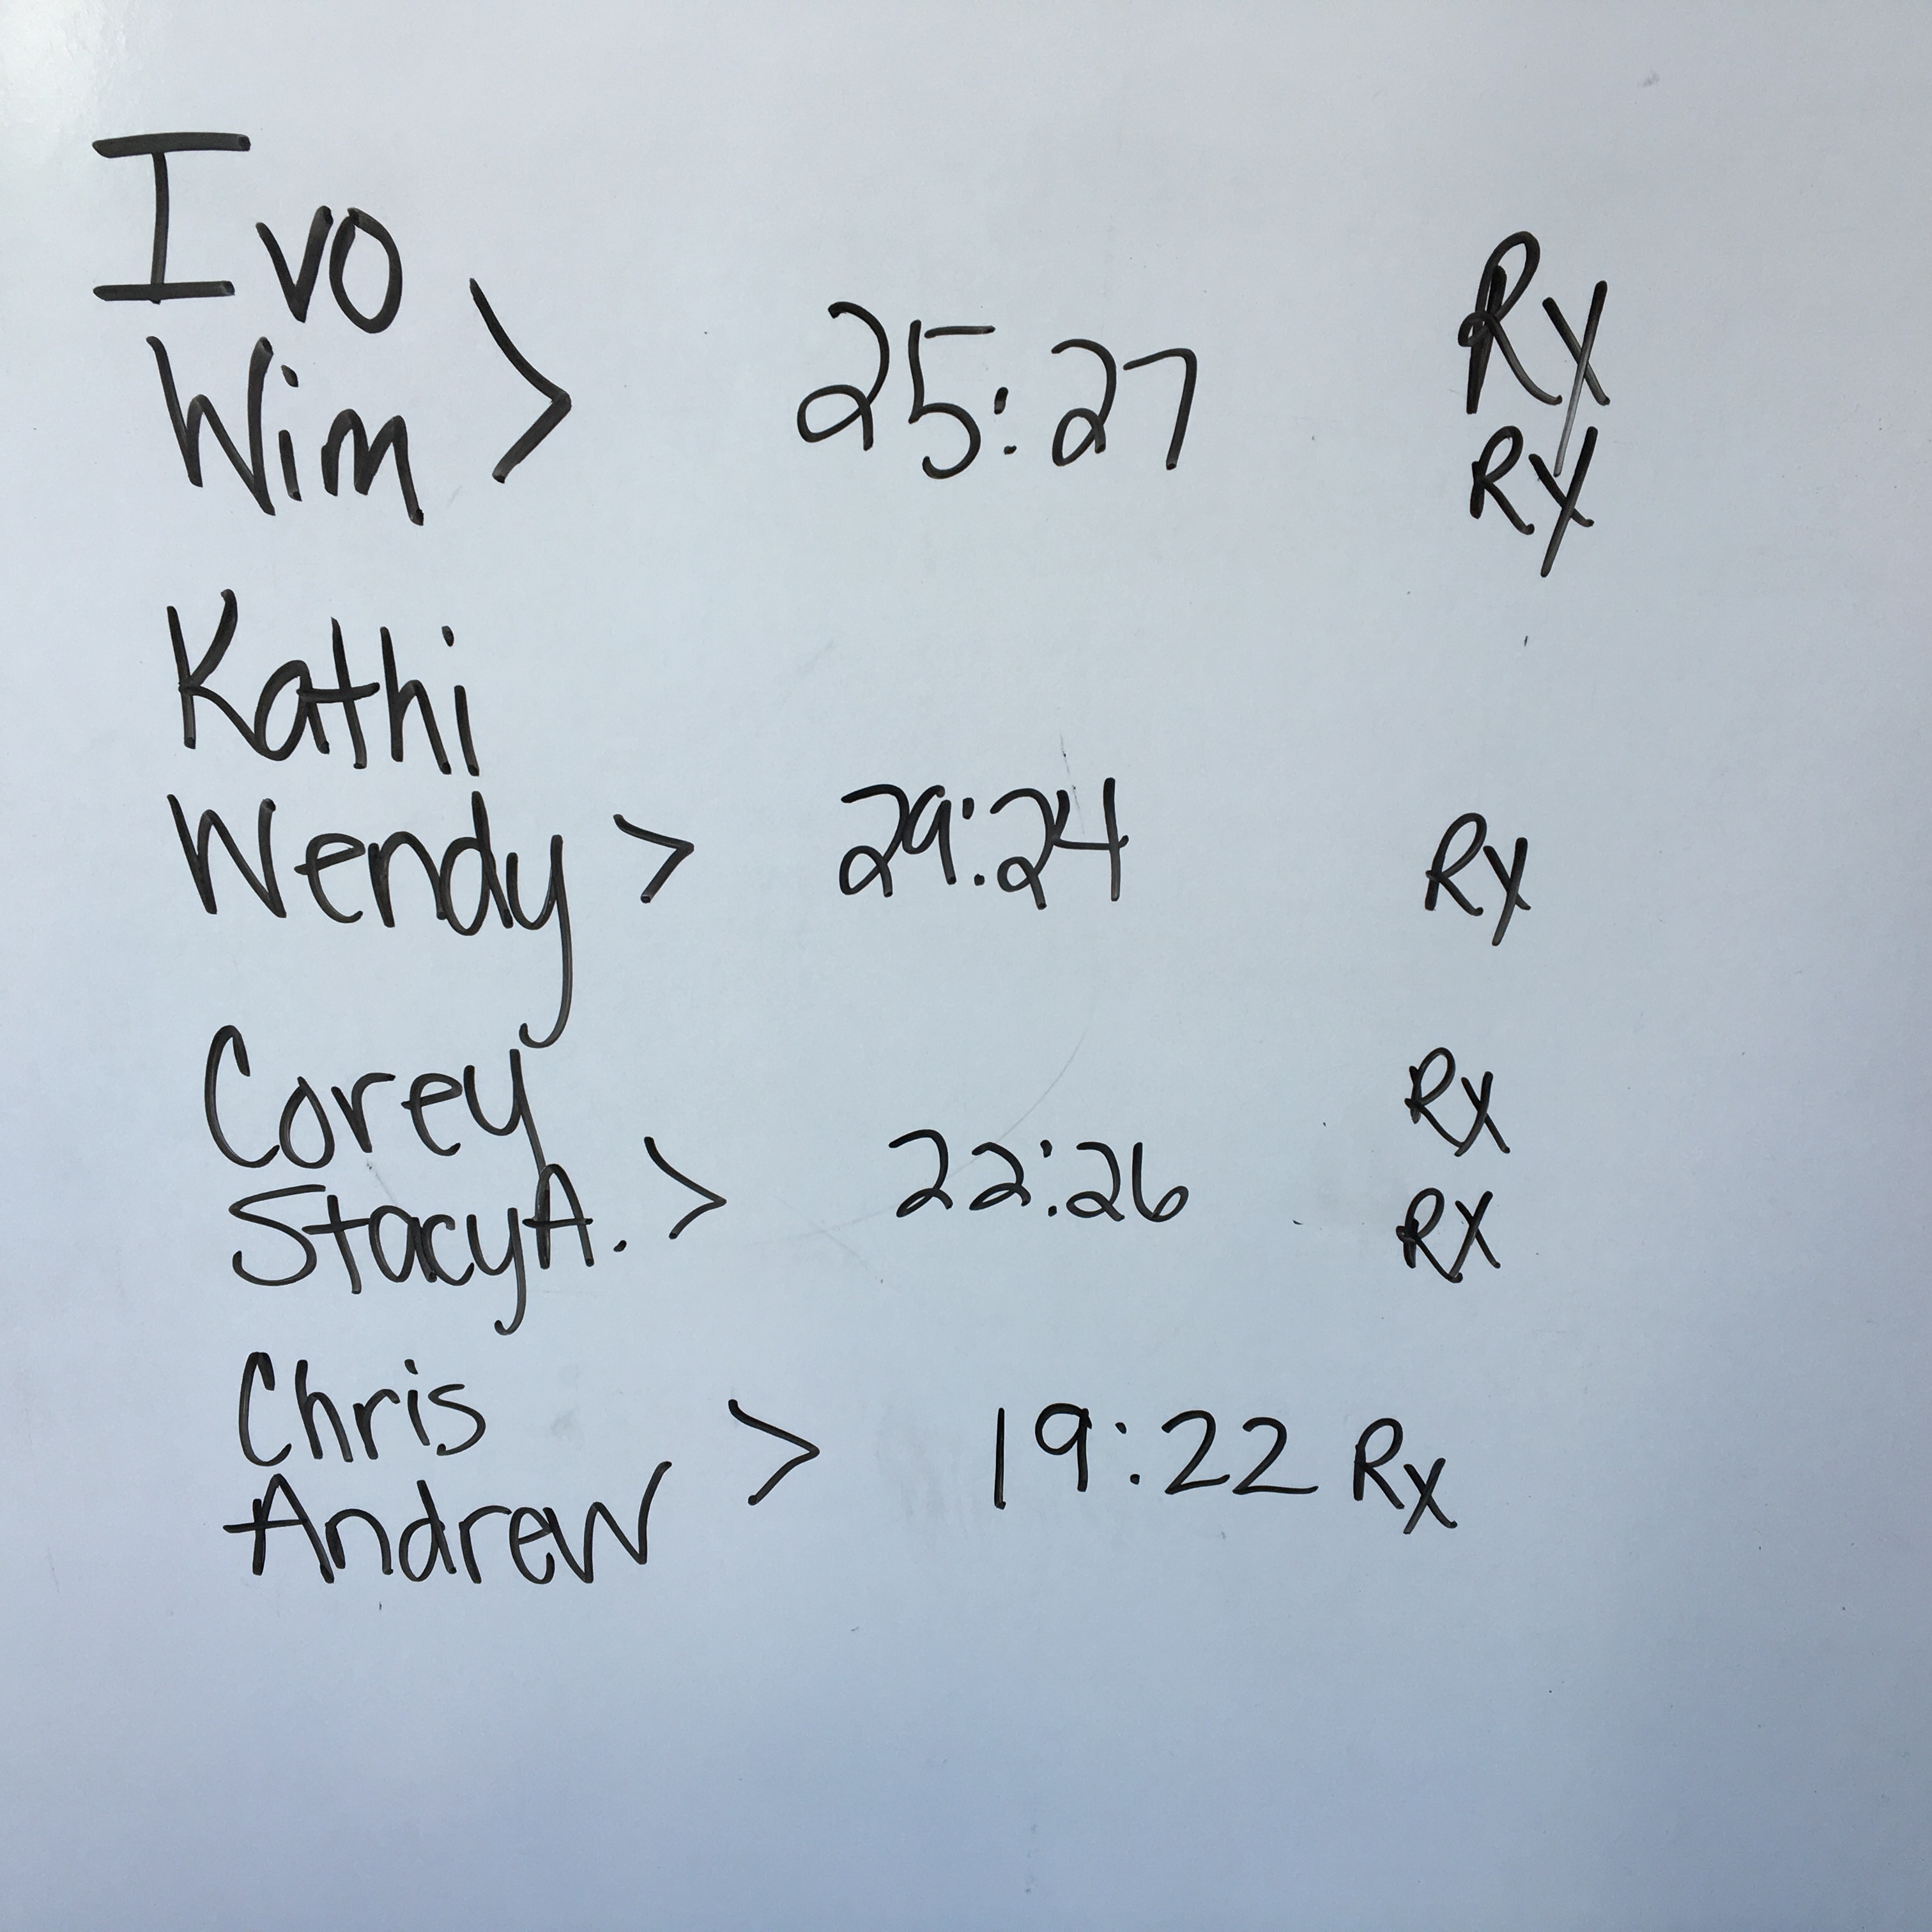 Ivo
Wim > 25:27 Rx
Rx
Kathi
Wendy > 29:24 Rx
Corey Rx
Stacy A. > 22:26 Rx
Chris
Andrew > 19:22 Rx